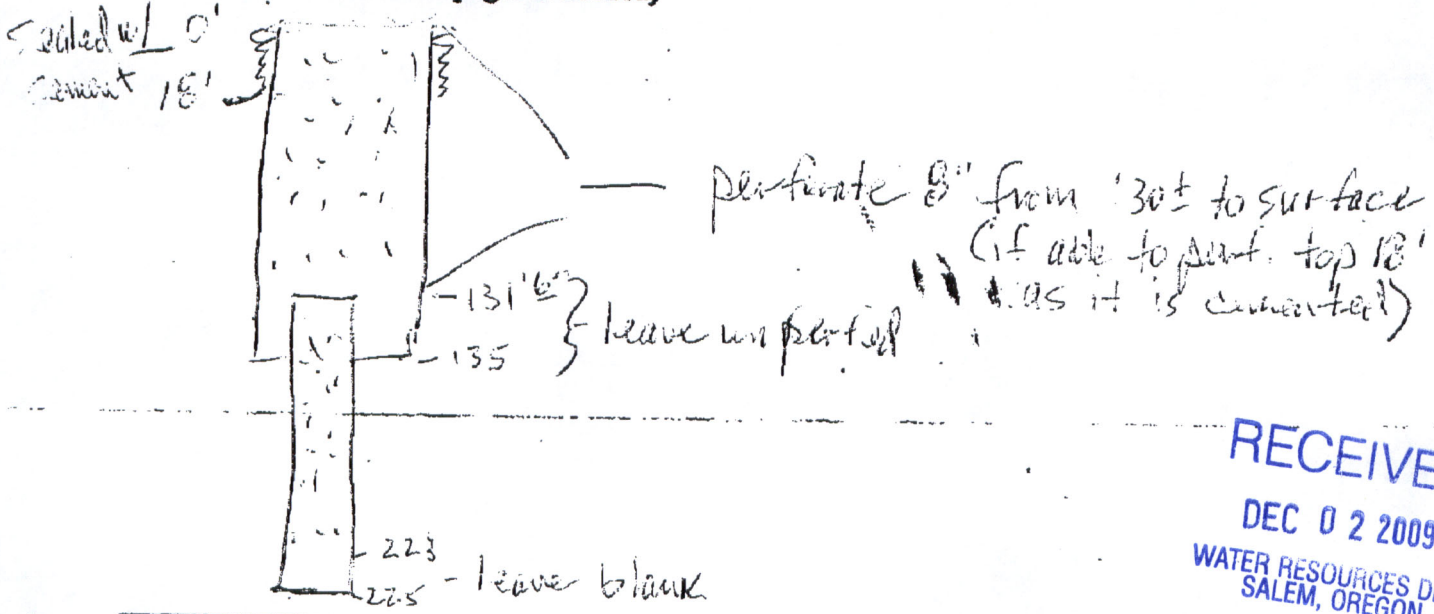 Sealed w/ 0'
cement 18'
perforate 8" from 130± to surface
(if able to perf. top 18'
as it is cemented)
131'
leave unperf'd
135
223
225 - leave blank
RECEIVE
DEC 02 2009
WATER RESOURCES D
SALEM, OREGON